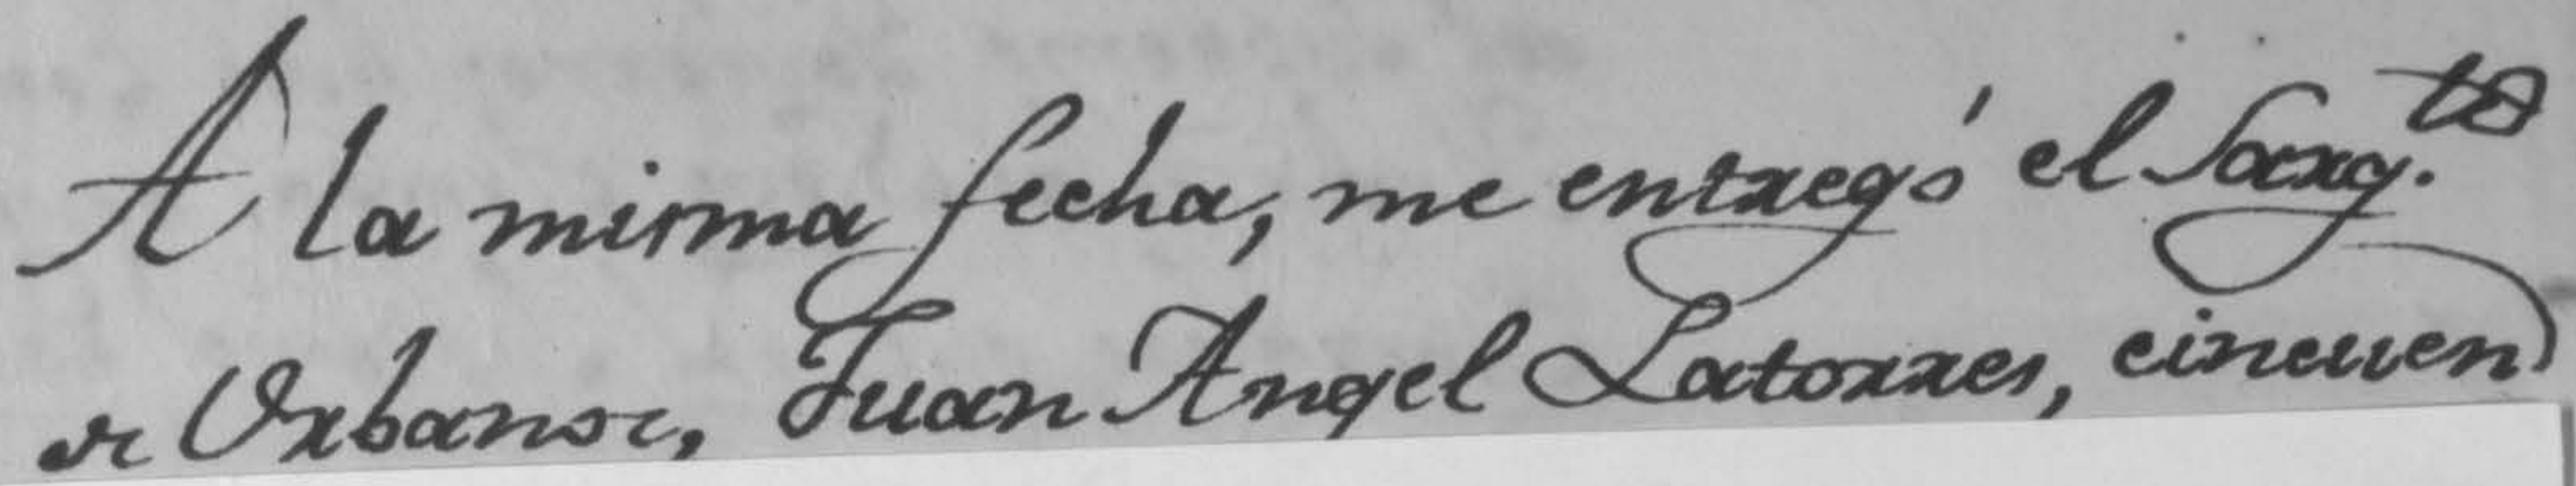 A la misma fecha, me entregó el Sarg.to
de Urbanos, Juan Angel Latorres, cincuen